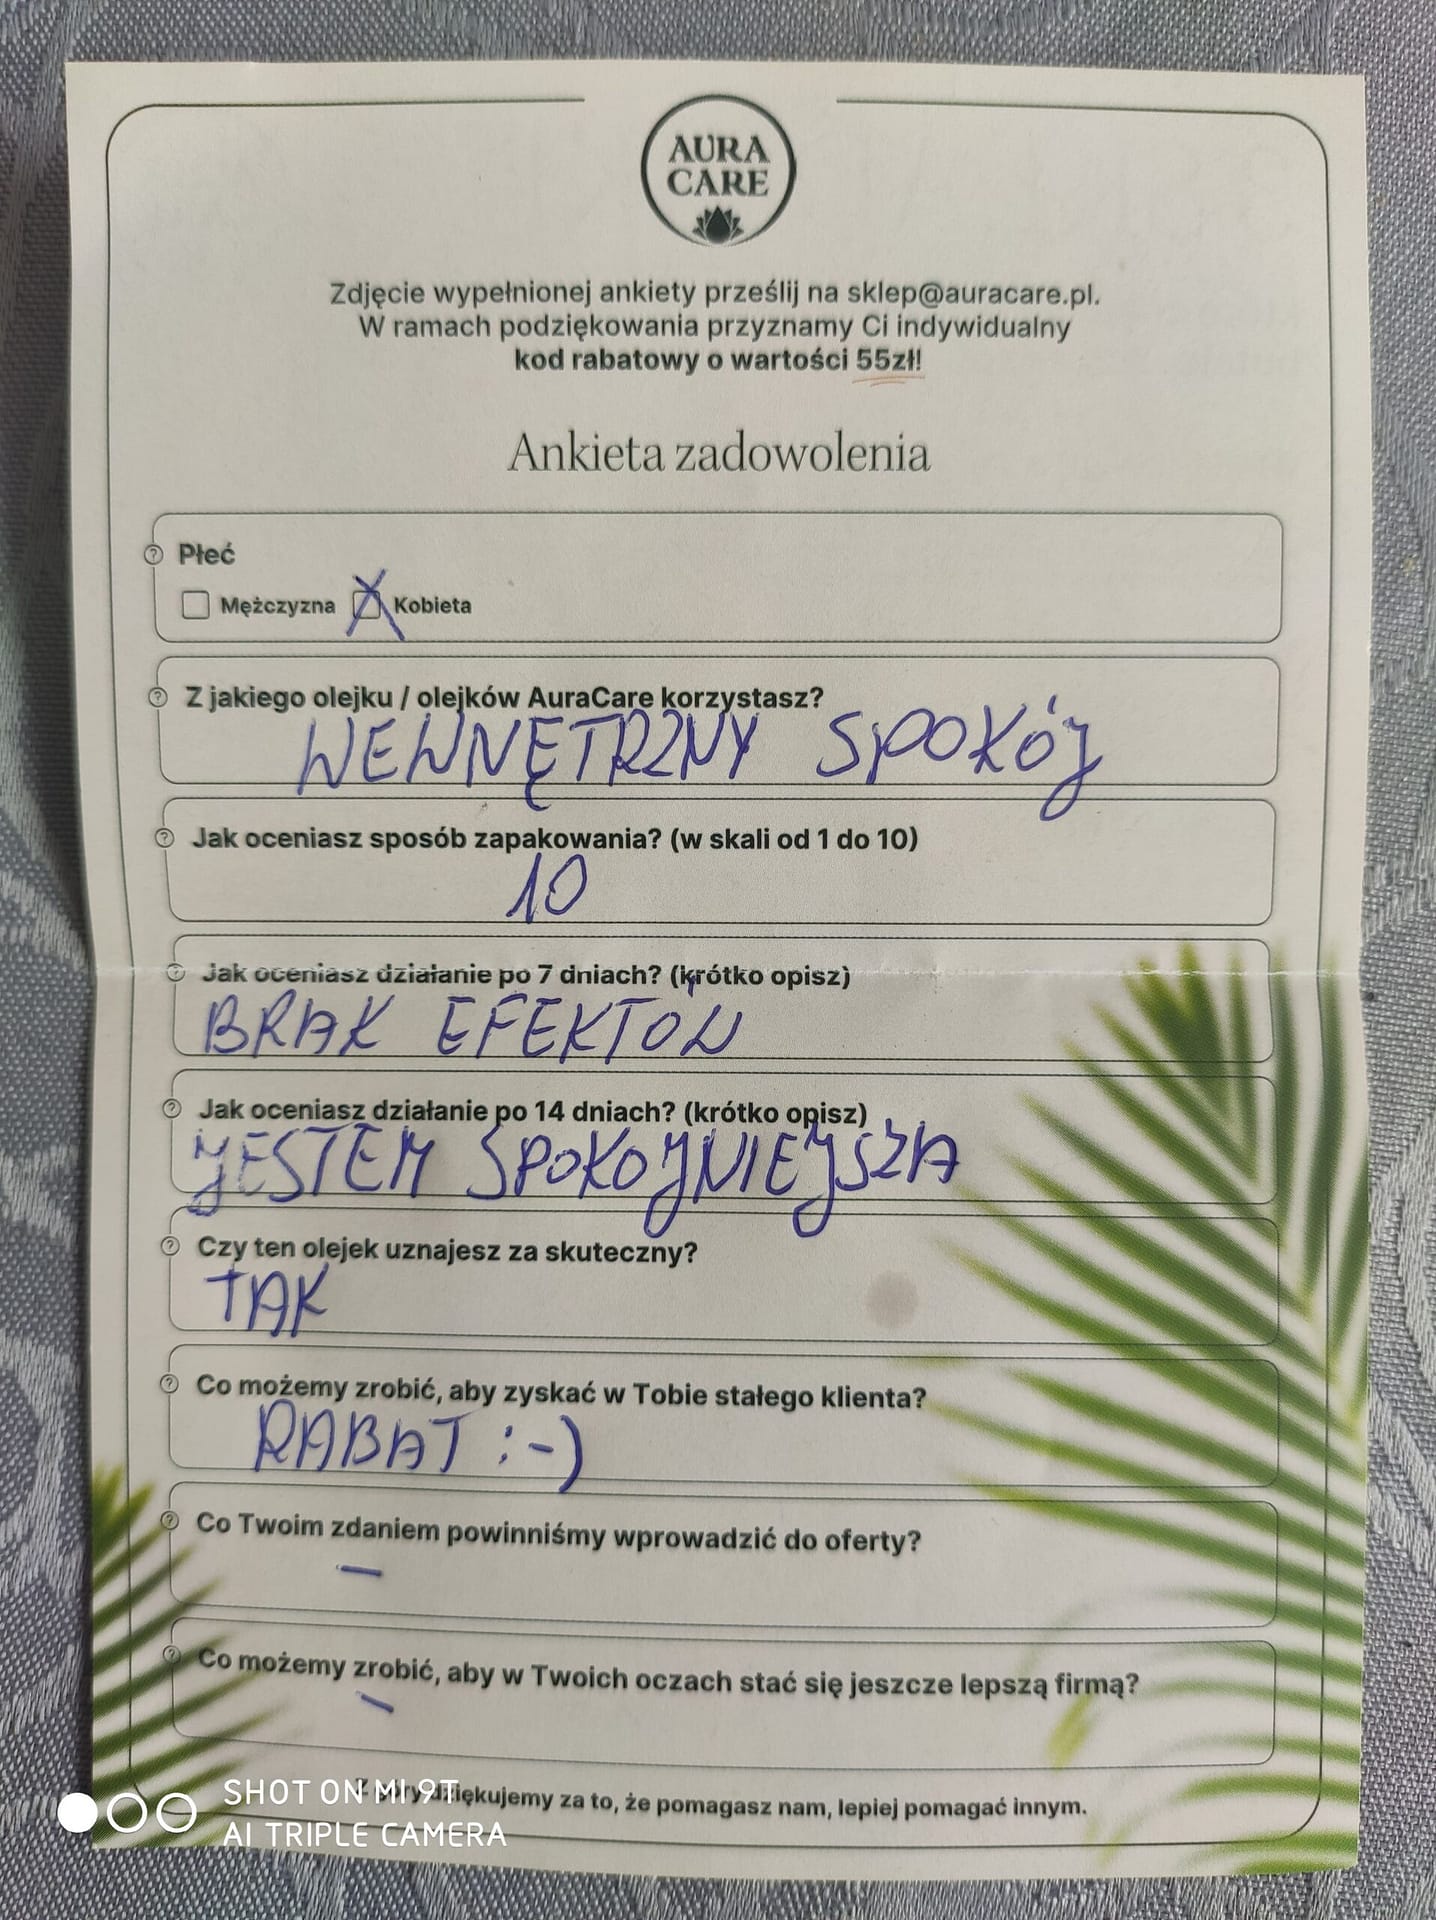 AURA
CARE
Zdjęcie wypełnionej ankiety prześlij na sklep@auracare.pl.
W ramach podziękowania przyznamy Ci indywidualny
kod rabatowy o wartości 55zł!
Ankieta zadowolenia
Płeć
Mężczyzna Kobieta
Z jakiego olejku / olejków AuraCare korzystasz?
WEWNĘTRZNY SPOKÓJ
Jak oceniasz sposób zapakowania? (w skali od 1 do 10)
10
Jak oceniasz działanie po 7 dniach? (krótko opisz)
BRAK EFEKTÓW
Jak oceniasz działanie po 14 dniach? (krótko opisz)
JESTEM SPOKOJNIEJSZA
Czy ten olejek uznajesz za skuteczny?
TAK
Co możemy zrobić, aby zyskać w Tobie stałego klienta?
RABAT :-)
Co Twoim zdaniem powinniśmy wprowadzić do oferty?
-
Co możemy zrobić, aby w Twoich oczach stać się jeszcze lepszą firmą?
-
Z góry dziękujemy za to, że pomagasz nam, lepiej pomagać innym.
SHOT ON MI 9T
AI TRIPLE CAMERA